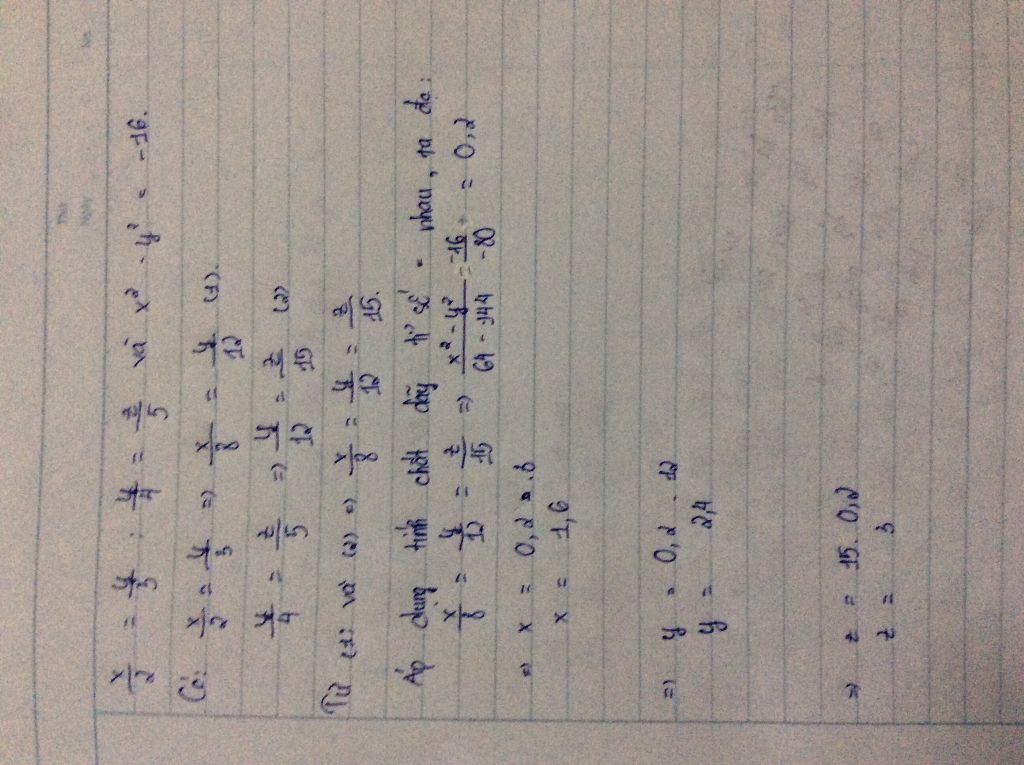 x/2 = y/3 ; y/4 = z/5 và x² - y² = -16.
Có: x/2 = y/3 => x/8 = y/12 (1).
y/4 = z/5 => y/12 = z/15 (2)
Từ (1) và (2) => x/8 = y/12 = z/15.
Áp dụng tính chất dãy tỉ số = nhau, ta đc:
x/8 = y/12 = z/15 => x² - y²/64 - 144 = -16/-80 = 0,2
=> x = 0,2 . 8
x = 1,6
=> y = 0,2 . 12
y = 2,4
=> z = 15 . 0,2
z = 3